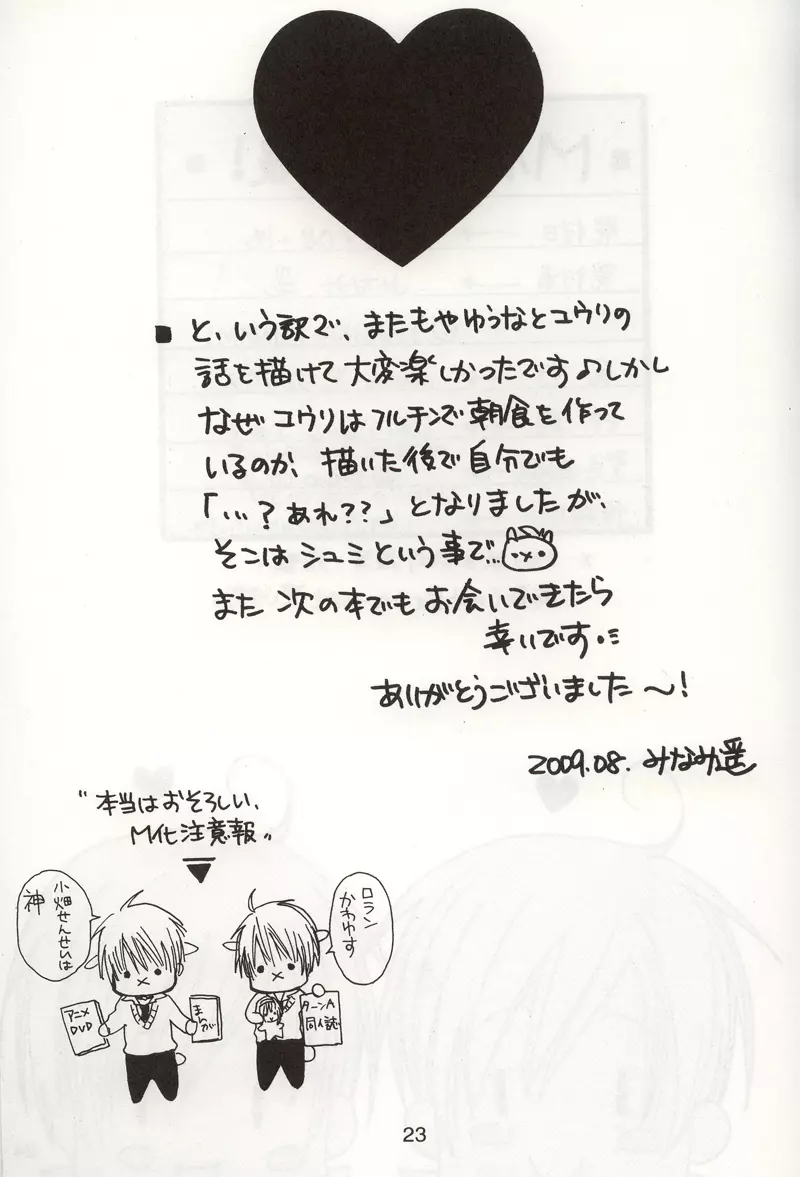 と、いう訳で、またもやゆうなとユウリの
話を描けて大変楽しかったです♪しかし
なぜユウリはフルチンで朝食を作って
いるのか、描いた後で自分でも
「…？あれ？？」となりましたが、
そこはシュミという事で…
また次の本でもお会いできたら
幸いです。
ありがとうございました〜！
2009.08. みなみ遥
"本当はおそろしい、
M化注意報"
小畑せんせいは
神
アニメ
DVD
まんが
ロラン
かわゆす
ターンA
同人誌
23